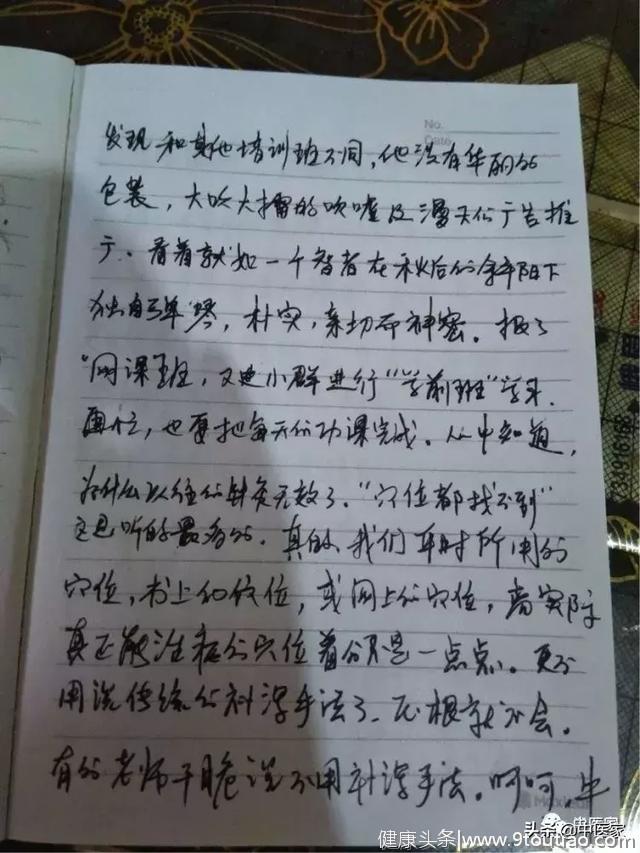 No.
Date
发现和其他培训班不同，他没有华丽的
包装，大吹大擂的吹嘘及漫天的广告推
广。看着就如一个智者在秋后的斜阳下
独自弹琴，朴实，亲切而神密。报了
“网课班，又进小群进行“学前班”学习．
再忙，也要把每天的功课完成。从中知道，
为什么以往的针灸无效了。“穴位都找不到”
这是听的最多的．真的，我们平时所用的
穴位，书上的穴位，或网上的穴位，离实际
真正能准确的穴位着的只是一点点。更不
用说传统的补泻手法了．压根就不会。
有的老师干脆说不用补泻手法。呵呵，牛
Maxleaf
头条@中医家
中医家
健康头条www.9toutiao.com